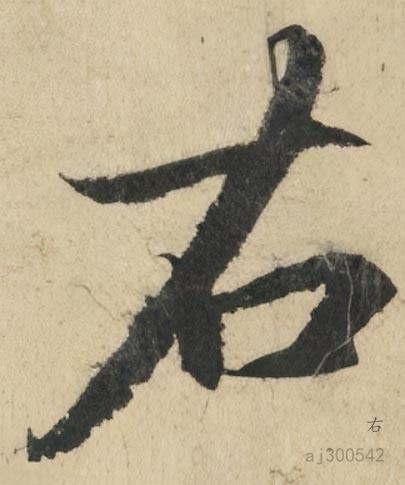 右
右
aj300542